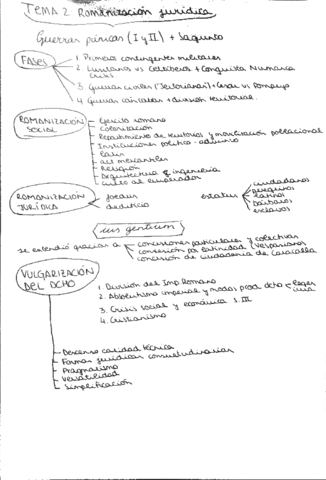 TEMA 2 Romanización jurídica
Guerras púnicas (I y II) + Sagunto
FASES
1. Primeros contingentes militares
2. Lusitanos vs Celtíberos + Conquista Numancia
Crisis
3. Guerras civiles (Sertorianas) + César vs Pompeyo
4. Guerras cántabras + división territorial.
ROMANIZACIÓN SOCIAL
- Ejército romano
- Colonización
- Repartimiento de territorios y movilización poblacional
- Instituciones político-admvas
- Latín
- act mercantiles
- Religión
- Arquitectura e ingeniería
- culto al emperador
ROMANIZACIÓN JURÍDICA
foedus
deditio
estatus
ciudadanos
peregrinos
latinos
bárbaros
esclavos
ius gentium
se extendió gracias a
concesiones particulares y colectivas
concesión por latinidad (Vespasiano)
concesión de ciudadanía de Caracalla
VULGARIZACIÓN DEL DCHO
1. División del Imp. Romano
2. Absolutismo imperial y modos prod. dcho
leges
iura
3. Crisis social y económica S. III
4. Cristianismo
- Descenso calidad técnica
- Formas jurídicas consuetudinarias
- Pragmatismo
- Versatilidad
- Simplificación